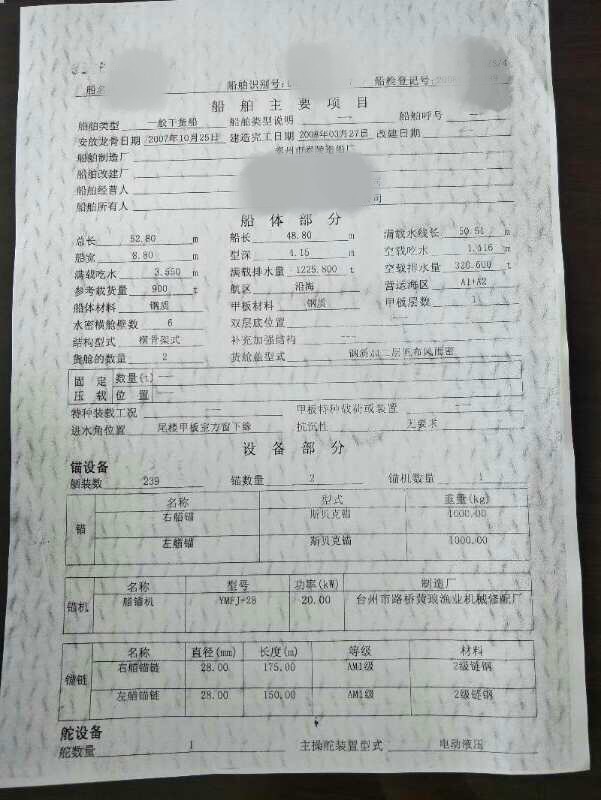 船舶识别号: 船检登记号:
船舶主要项目
船舶类型 一般干货船 船舶类型说明 — 船舶呼号 —
安放龙骨日期 2007年10月25日 建造完工日期 2008年03月27日 改建日期 —
船舶制造厂
船舶改建厂
船舶经营人 司
船舶所有人 司
船体部分
总长 52.80 m 船长 48.80 m 满载水线长 50.51 m
船宽 8.80 m 型深 4.15 m 空载吃水 1.416 m
满载吃水 3.550 m 满载排水量 1225.800 t 空载排水量 320.600 t
参考载货量 900 t 航区 沿海 营运海区 A1+A2
船体材料 钢质 甲板材料 钢质 甲板层数 1
水密横舱壁数 6 双层底位置
结构型式 横骨架式 补充加强结构 —
货舱的数量 2 货舱盖型式
固定压载 数量(t) —
位置 —
特种装载工况 — 甲板特种敏或装置 —
进水角位置 尾楼甲板室方窗下缘 抗沉性 无要求
设备部分
锚设备
舾装数 239 锚数量 2 锚机数量 1
锚 名称 型式 重量(kg)
右艏锚 斯贝克锚 1000.00
左艏锚 斯贝克锚 1000.00
锚机 名称 型号 功率(kW) 制造厂
艏锚机 YMFJ-28 20.00 台州市路桥黄琅渔业机械修配厂
锚链 名称 直径(mm) 长度(m) 等级 材料
右艏锚链 28.00 175.00 AM1级 2级链钢
左艏锚链 28.00 150.00 AM1级 2级链钢
舵设备
舵数量 1 主操舵装置型式 电动液压